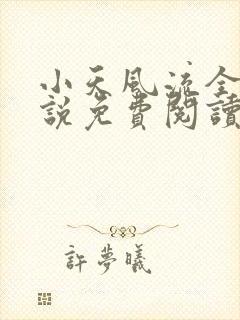 小天風流全
說免費閱讀
許夢曦